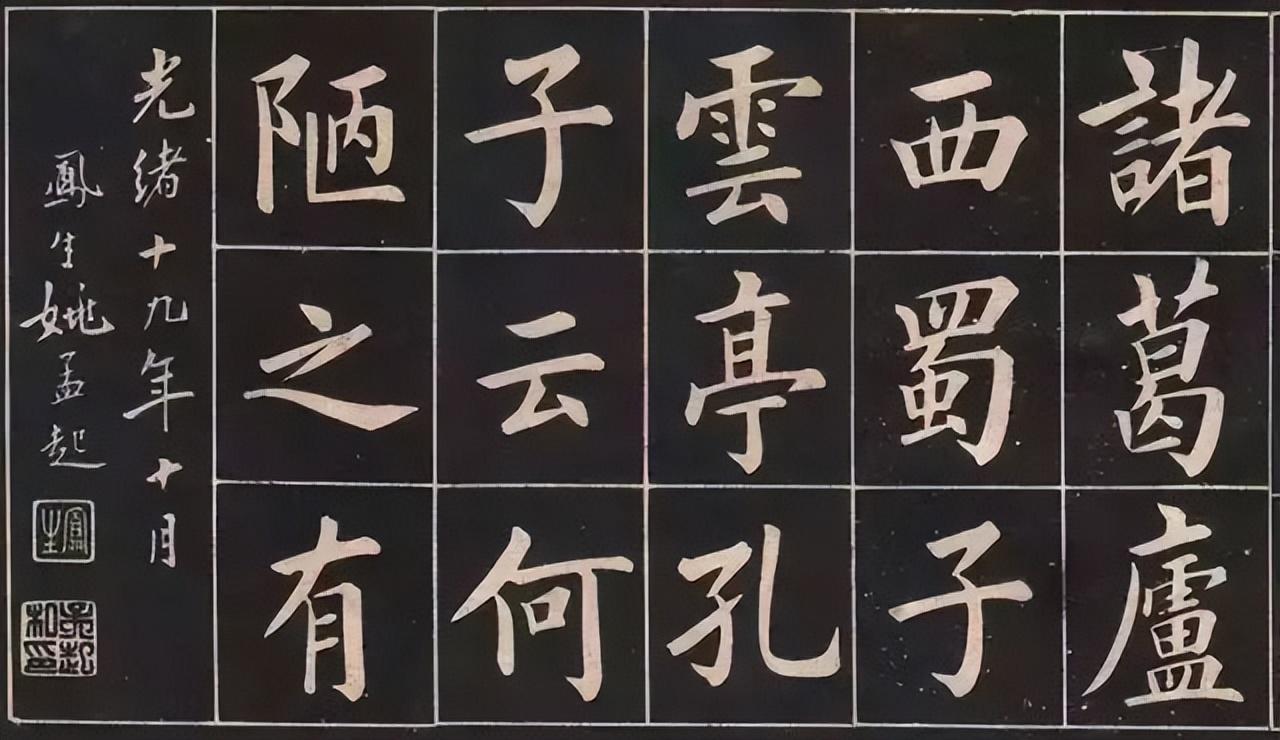 諸葛廬
西蜀子
雲亭孔
子云何
陋之有
光緒十九年十月
鳳生姚孟起
鳳生